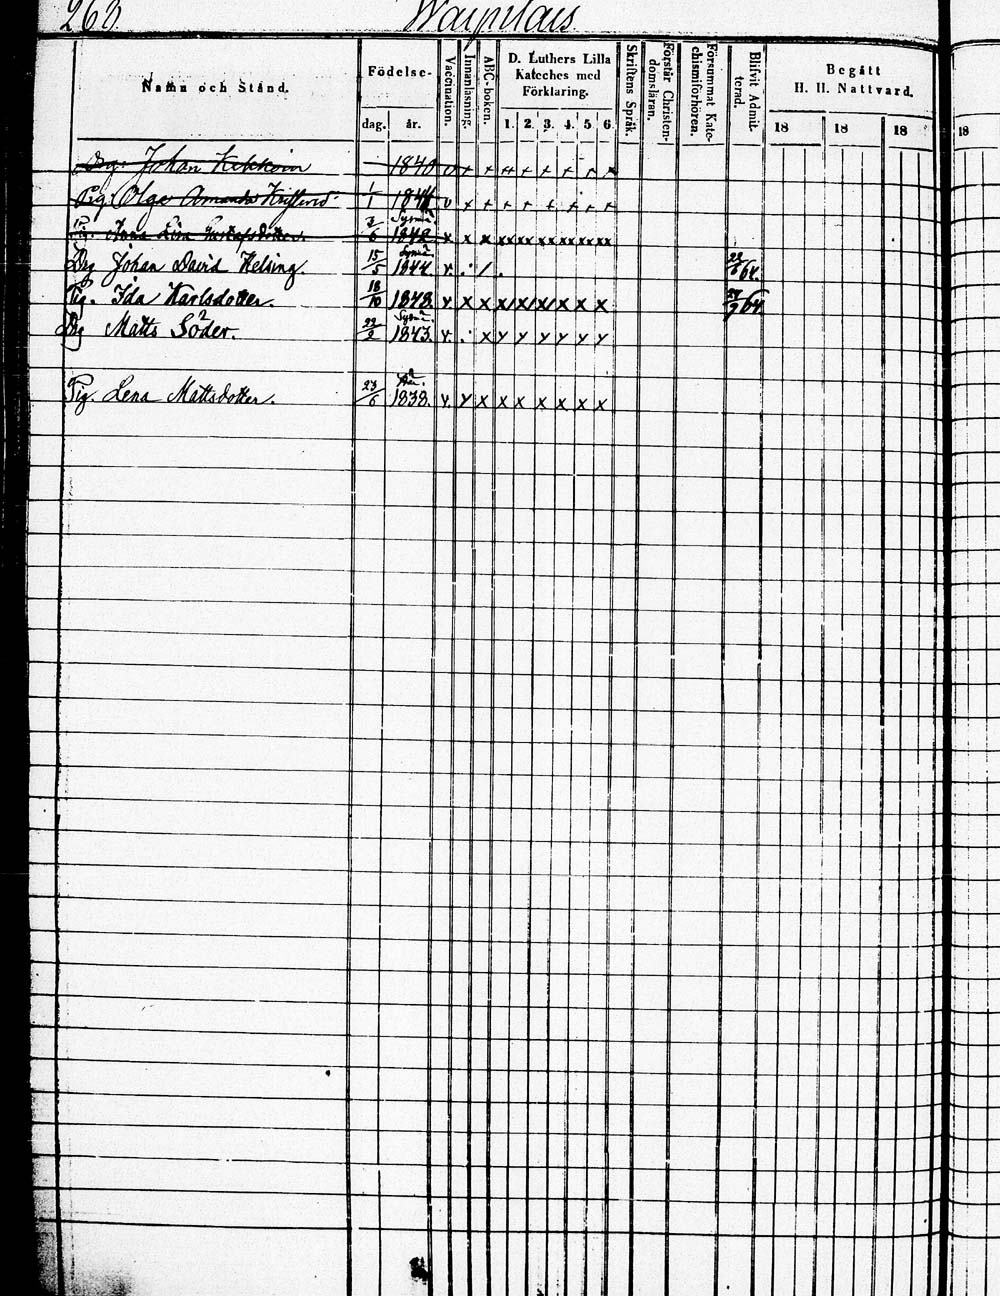 263.
Namn och Stånd.
Födelse-
dag. år.
Vaccination.
Innanläsning.
ABC-boken.
D. Luthers Lilla
Kateches med
Förklaring.
1. 2. 3. 4. 5 6
Skriftens Språk.
Förstår Christen-
domsläran.
Försummat Kate-
chismiförhören.
Blifvit Admit-
terad.
Begått
H. H. Nattvard.
18 18 18 18
Drg. Johan 1840 v + + ++ + + + + +
Pig. Olga Amanda 1/1 1844 v x + + + + + + +
Sysmä.
Pig. Anna Lisa Gustafsdotter. 1842 x x x xx xx xx xx xx xx
Sysmä.
Drg Johan David Helsing. 15/5 1844. v. 64.
Pig. Ida Karlsdotter. 18/10 1848. v x x x x x x x x 64
Sysmä.
Drg Matts Söder. 22/2 1843. v. x y y y y y y
Pig. Lena Mattsdotter. 23/6 1838. v. y x x x x x x x